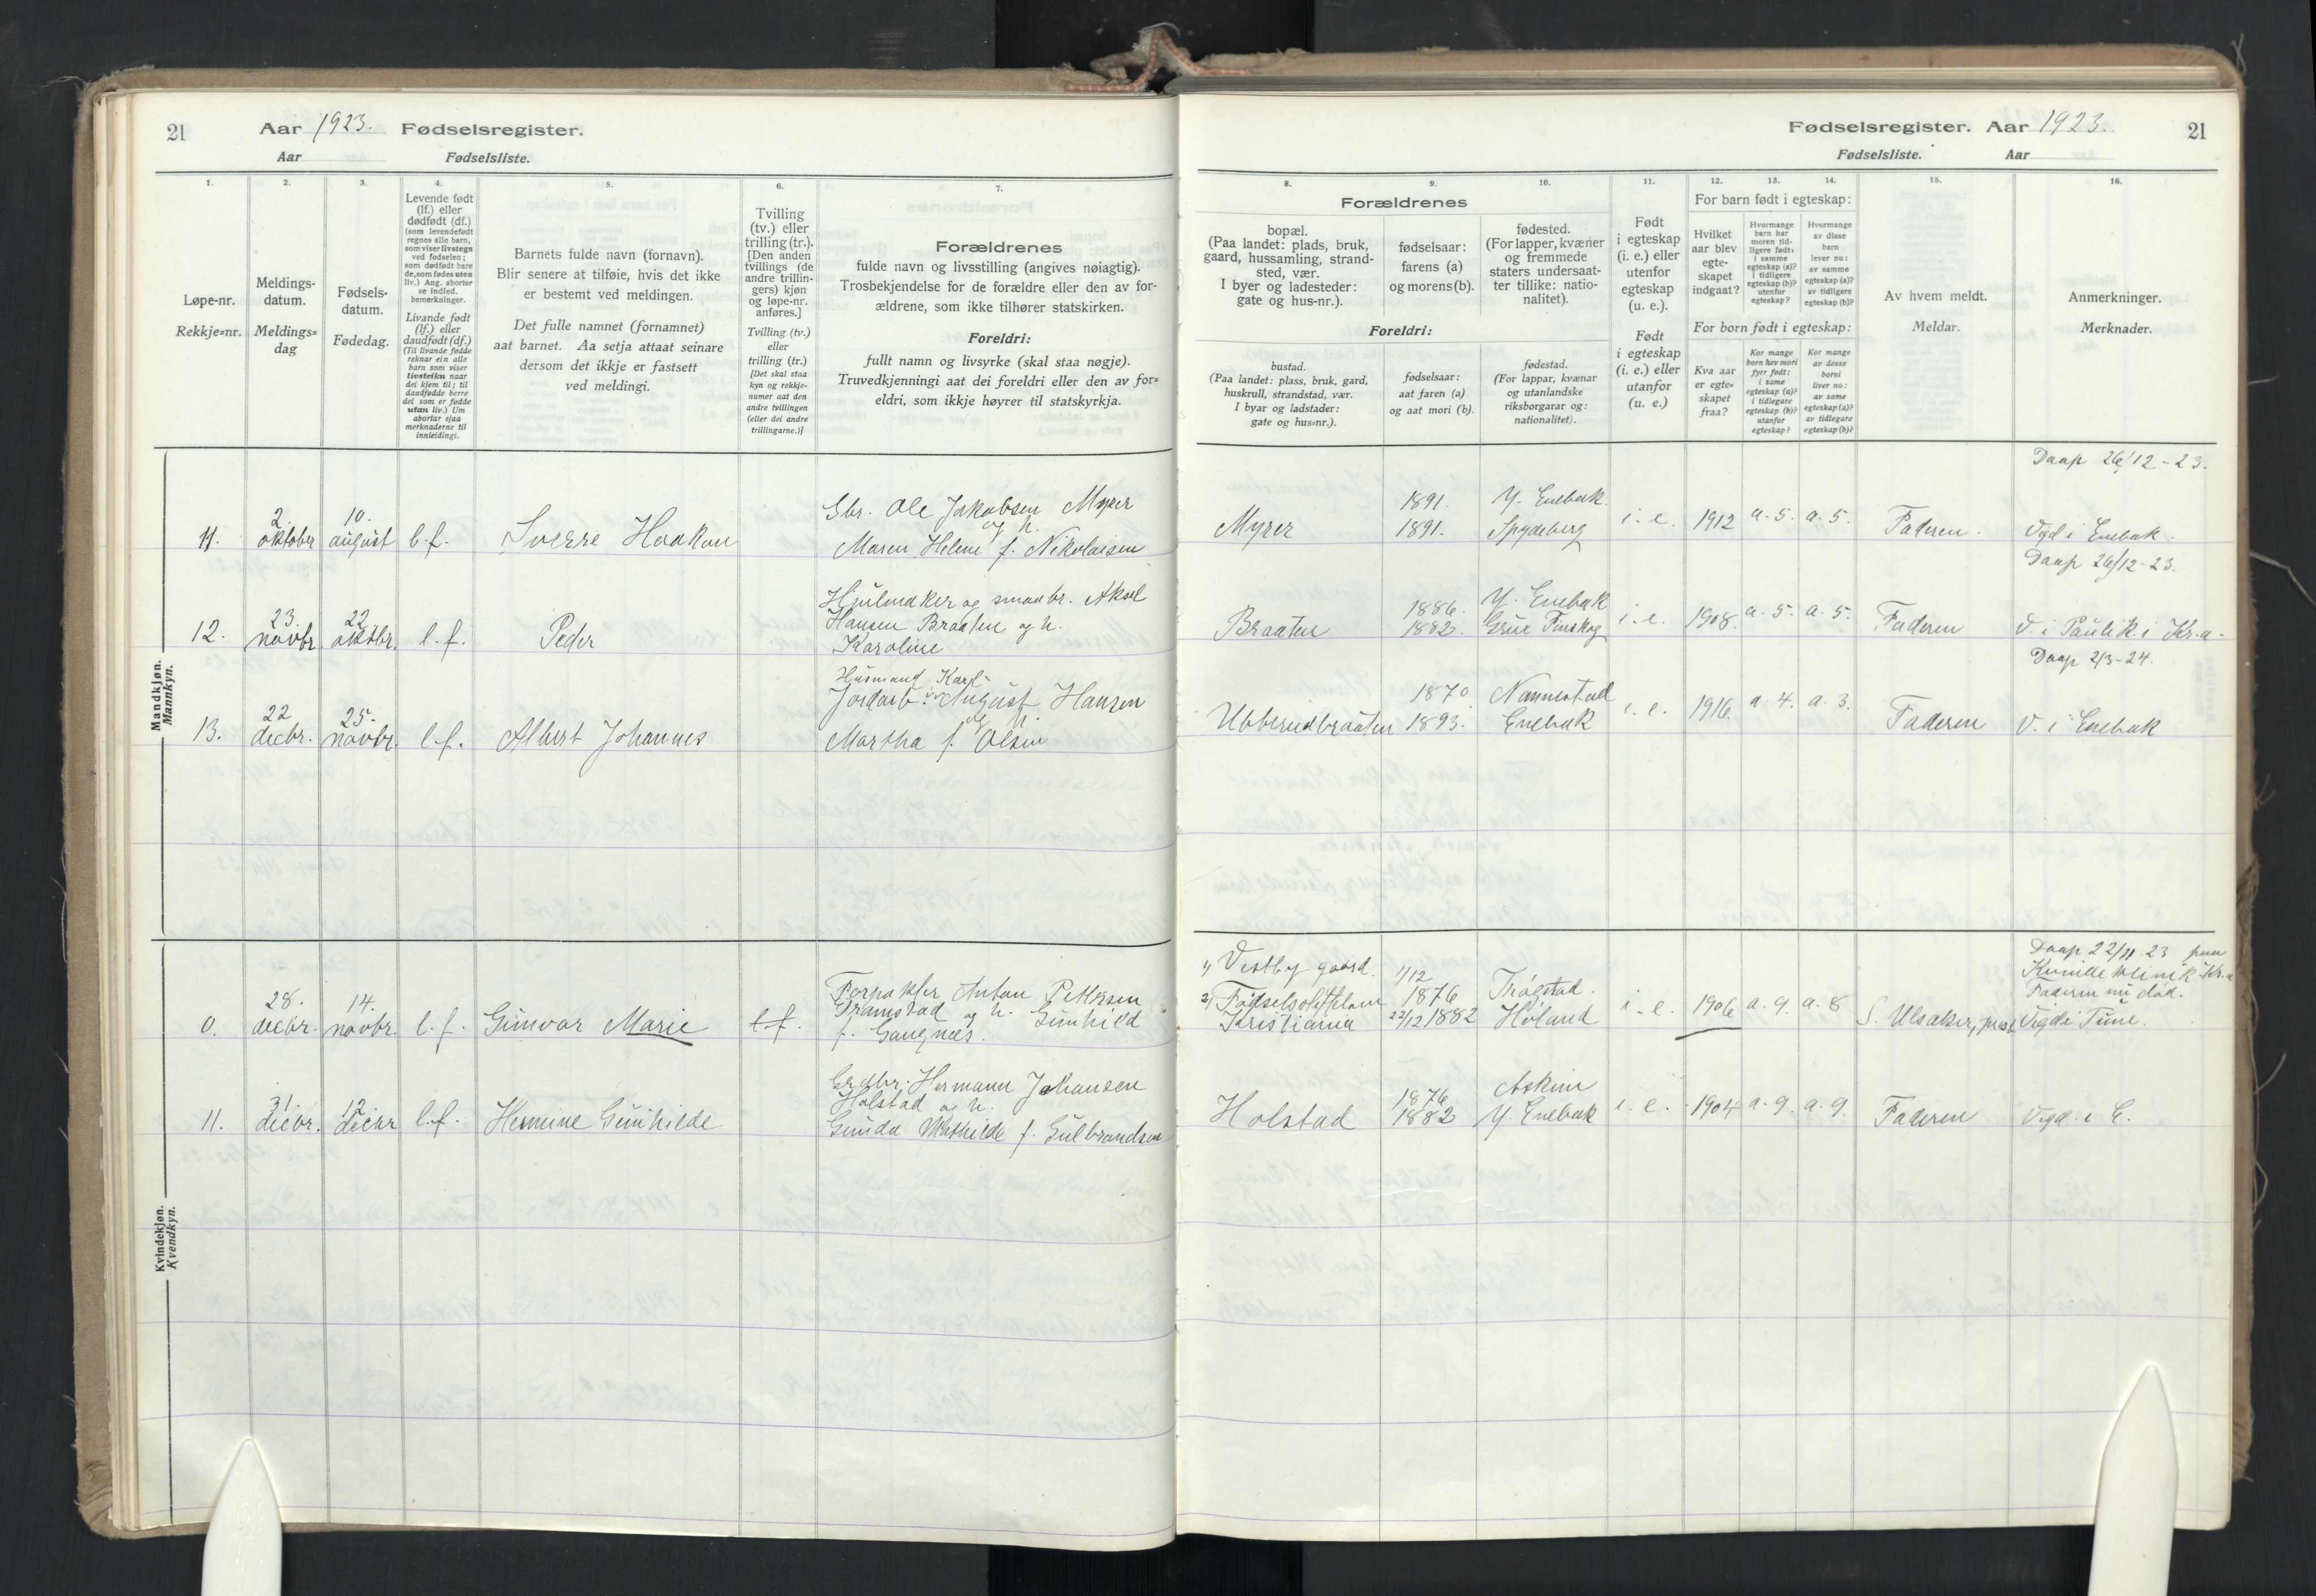 21 Aar 1923. Fødselsregister.
Aar Fødselsliste.
1. 2. 3. 4. 5. 6. 7.
Løpe-nr.
Rekkje=nr.
Meldings-
datum.
Meldings=
dag
Fødsels-
datum.
Fødedag.
Levende født
(lf.) eller
dødfødt (df.)
(som levendefødt
regnes alle barn,
som viser livstegn
ved fødselen;
som dødfødt bare
de, som fødes uten
liv.) Ang. aborter
se indled.
bemerkninger.
Livande født
(lf.) eller
daudfødt (df.)
(Til livande fødde
reknar ein alle
barn som viser
livsteikn naar
dei kjem til; til
daudfødde berre
dei som er fødde
utan liv.) Um
abortar sjaa
merknaderne til
innleidingi.
Barnets fulde navn (fornavn).
Blir senere at tilføie, hvis det ikke
er bestemt ved meldingen.
Det fulle namnet (fornamnet)
aat barnet. Aa setja attaat seinare
dersom det ikkje er fastsett
ved meldingi.
Tvilling
(tv.) eller
trilling (tr.).
[Den anden
tvillings (de
andre trillin-
gers) kjøn
og løpe-nr.
anføres.]
Tvilling (tv.)
eller
trilling (tr.)
[Det skal staa
kyn og rekkje-
numer aat den
andre tvillingen
(eller dei andre
trillingarne.)]
Forældrenes
fulde navn og livsstilling (angives nøiagtig).
Trosbekjendelse for de forældre eller den av for-
ældrene, som ikke tilhører statskirken.
Foreldri:
fullt namn og livsyrke (skal staa nøgje).
Truvedkjenningi aat dei foreldri eller den av for=
eldri, som ikkje høyrer til statskyrkja.
Mandkjøn.
Mannkyn.
11. 2. oktober 10. august l.f. Sverre Haakon
Gbr. Ole Jakobsen Myrer
og h.
Maren Helene f. Nikolaisen
12. 23. novbr. 22. oktbr. l.f. Peder
Hjulmaker og smaabr. Aksel
Hansen Braaten og h.
Karoline
13. 22 decbr. 25. novbr. l.f. Albert Johannes
Husmand Karl
Jordarb. August Hansen
og h.
Martha f. Olsen
Kvindekjøn.
Kvendkyn.
0. 28. decbr. 14. novbr. l.f. Gunvor Marie l.f.
Forpakter Anton Pettersen
Framstad og h. Gunhild
f. Gangnæs.
11. 31 decbr. 12 decbr l.f. Hermine Gunhilde
Grdbr. Hermann Johansen
Holstad og h.
Gunda Mathilde f. Gulbrandsen
Fødselsregister. Aar 1923. 21
Fødselsliste. Aar
8. 9. 10. 11. 12. 13. 14. 15. 16.
Forældrenes
bopæl.
(Paa landet: plads, bruk,
gaard, hussamling, strand-
sted, vær.
I byer og ladesteder:
gate og hus-nr.).
fødselsaar:
farens (a)
og morens (b).
fødested.
(For lapper, kvæner
og fremmede
staters undersaat-
ter tillike: natio-
nalitet).
Foreldri:
bustad.
(Paa landet: plass, bruk, gard,
huskrull, strandstad, vær.
I byar og ladstader:
gate og hus=nr.).
fødselsaar:
aat faren (a)
og aat mori (b).
fødestad.
(For lappar, kvænar
og utanlandske
riksborgarar og:
nationalitet).
Født
i egteskap
(i. e.) eller
utenfor
egteskap
(u. e.).
Født
i egteskap
(i. e.) eller
utanfor
(u. e.)
For barn født i egteskap:
Hvilket
aar blev
egte-
skapet
indgaat?
Hvormange
barn har
moren tid-
ligere født:
i samme
egteskap (a)?
i tidligere
egteskap (b)?
utenfor
egteskap?
Hvormange
av disse
barn
lever nu:
av samme
egteskap (a)?
av tidligere
egteskap (b)?
For born født i egteskap:
Kva aar
er egte=
skapet
fraa?
Kor mange
born hev mori
fyrr født:
i same
egteskap (a)?
i tidlegare
egteskap (b)?
utanfor
egteskap?
Kor mange
av desse
borni
liver no:
av same
egteskap (a)?
av tidlegare
egteskap (b)?
Av hvem meldt.
Meldar.
Anmerkninger.
Merknader.
Daap 26/12-23.
Myrer 1891. 1891. Y. Enebak. Spydeberg i. e. 1912 a. 5. a. 5. Faderen. Vigd i Enebak.
Daap 26/12-23.
Braaten 1886. 1882. Y. Enebak Grue Finskog i. e. 1908. a. 5. a. 5. Faderen V. i Pauli K. i Kr.a.
Daap 2/3-24.
Ubberudbraaten 1870 1893. Nannestad Enebak i. e. 1916. a. 4. a. 3. Faderen V. i Enebak
Daap 22/11 23 paa
Kvinneklinik. Kr.a
Faderen nu død.
1) Vestby gaard. 1/12 1876 Trøgstad.
2) Fødselsstiftelsen
Kristiania 22/12 1882 Høland i. e. 1906 a. 9. a. 8 S. Ulsaker, prest Vigde i Tune.
Holstad 1876 1882 Askim Y. Enebak i. e. 1904 a. 9. a. 9. Faderen Vigd i E.